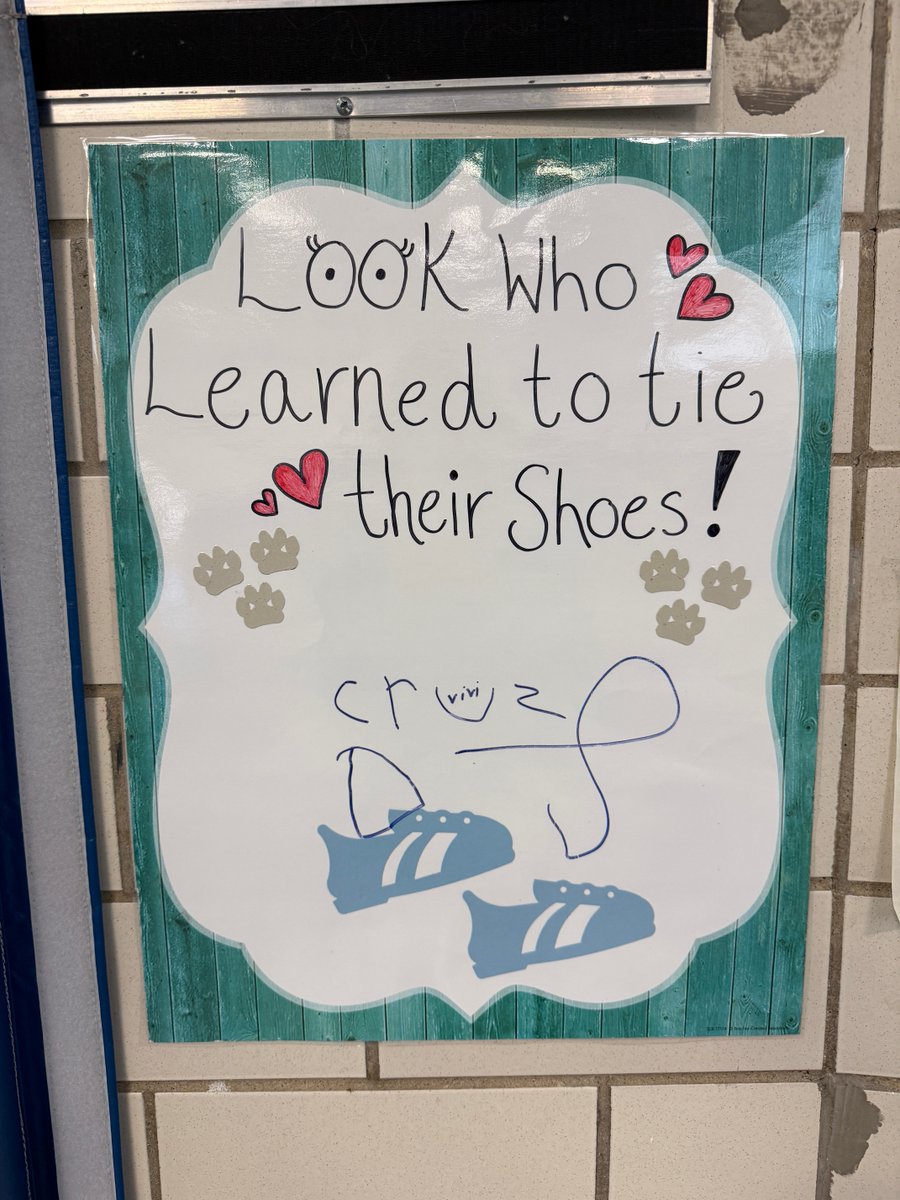 Look Who
Learned to tie
their Shoes!
cruz
vivi
D